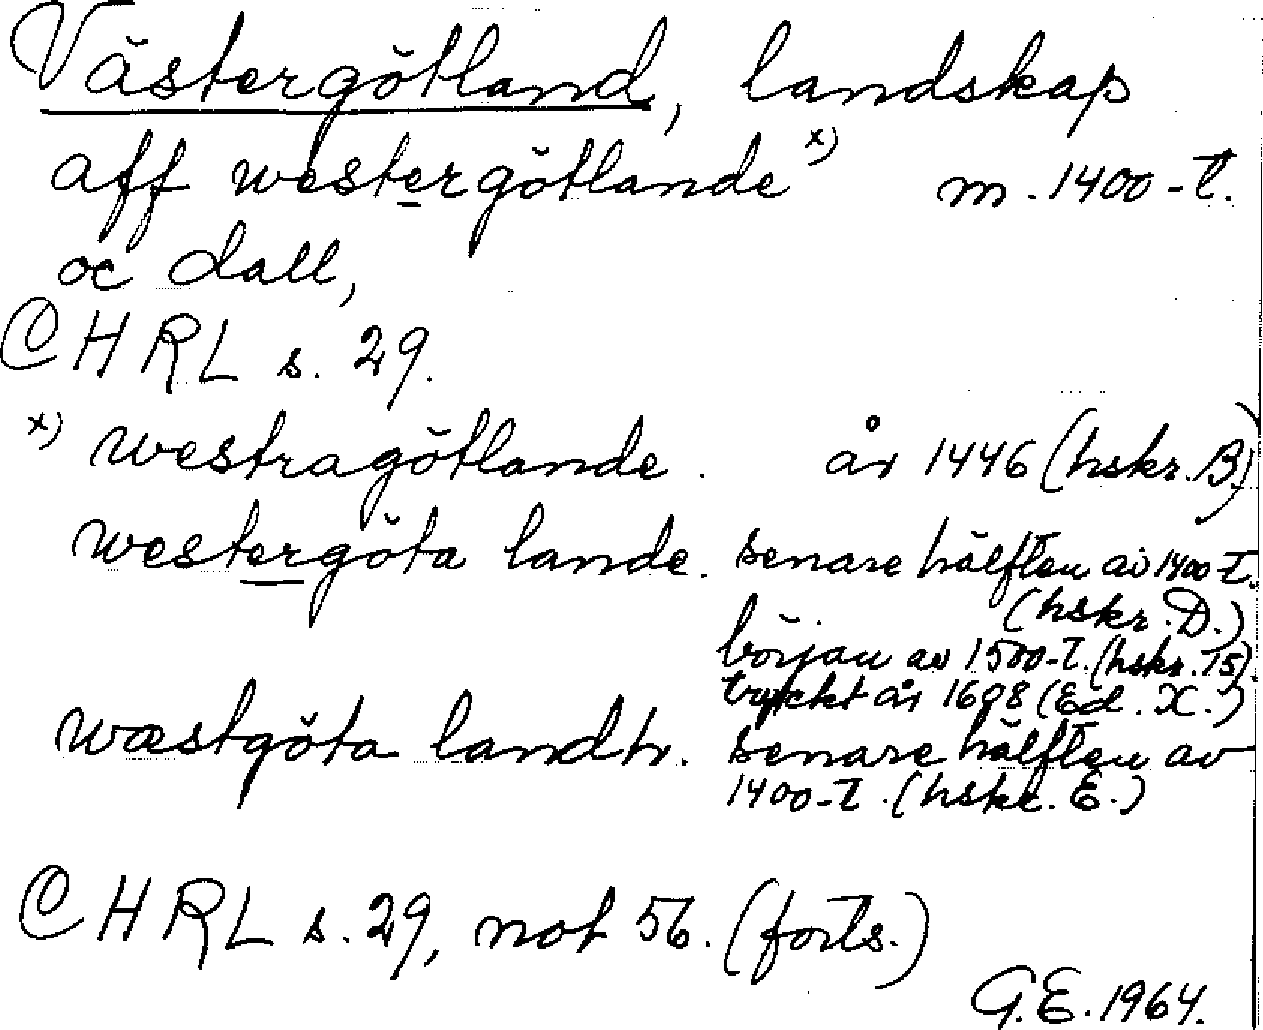 Västergötland, landskap
aff westergötlande x) m. 1400-t.
oc dall,
CHRL s. 29.
x) westragötlande. år 1446 (hskr. B)
westergöta lande. senare hälften av 1400-t.
(hskr. D.)
början av 1500-t. (hskr. Ts)
tryckt år 1698 (Ed. X.)
wæstgöta landh. senare hälften av
1400-t. (hskr. E.)
CHRL s. 29, not 56. (forts.)
G.E. 1964.